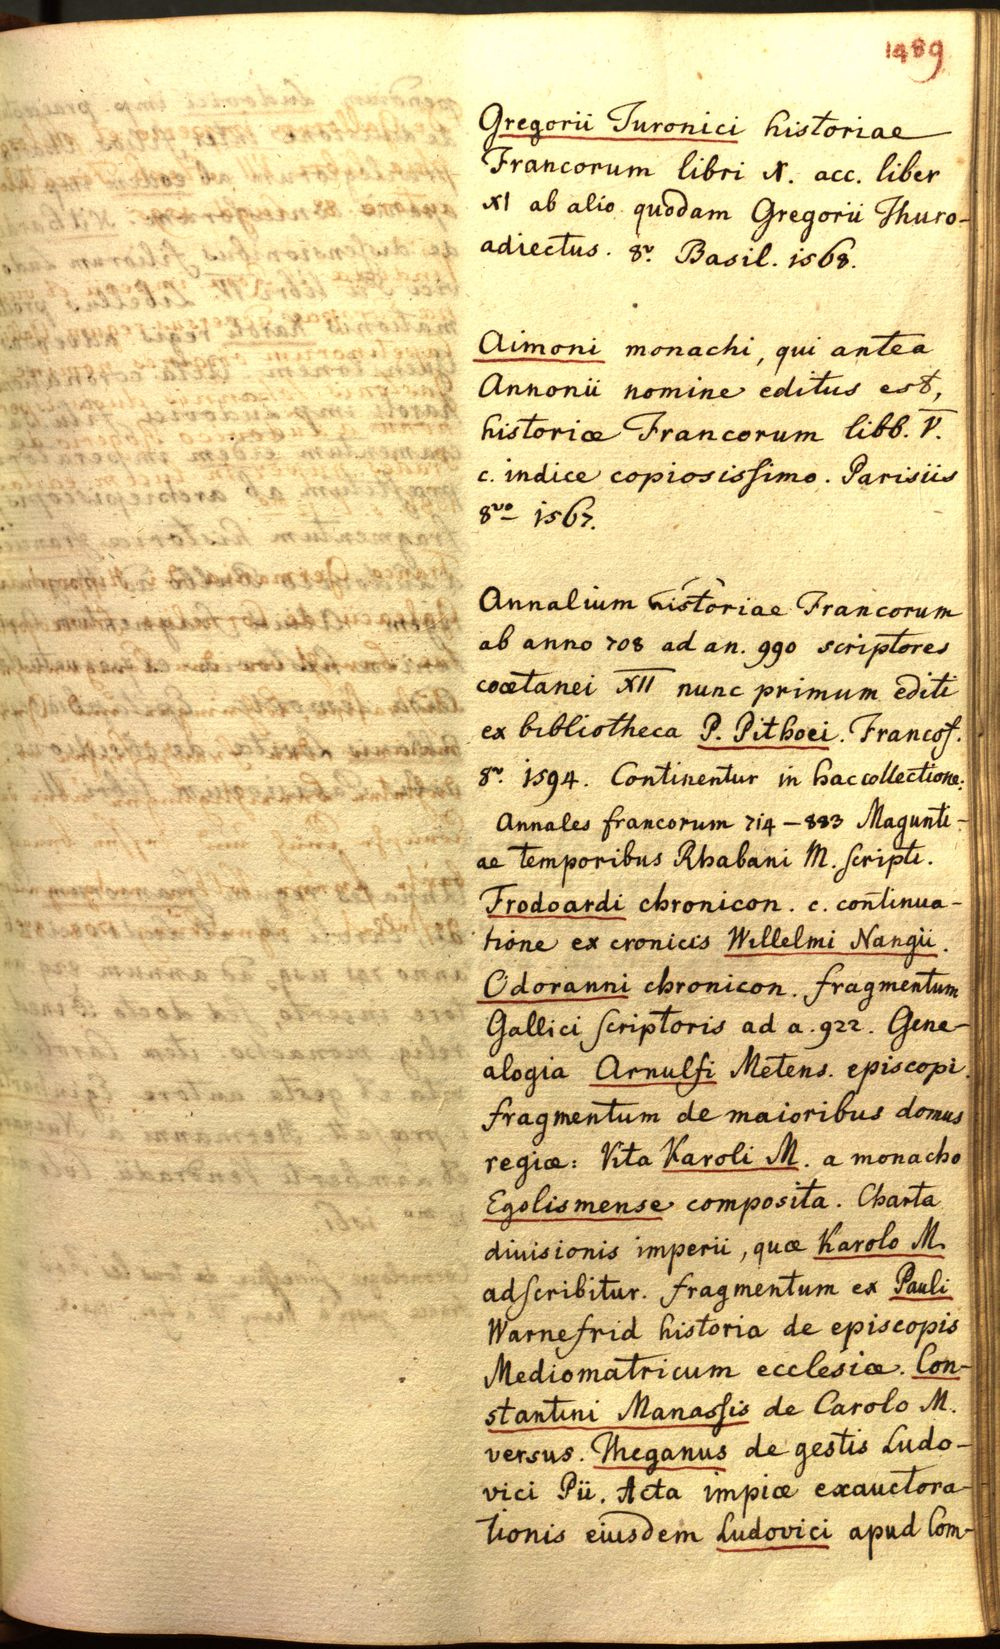 1489
Gregorii Turonici historiae
Francorum libri X. acc. liber
XI ab alio quodam Gregorii Thuro-
adiectus. 8º. Basil. 1568.
Aimoni monachi, qui antea
Annonii nomine editus est,
historiæ Francorum libb. V.
c. indice copiosissimo. Parisiis
8vo 1567.
Annalium historiae Francorum
ab anno 708 ad an. 990 scriptores
coætanei XII nunc primum editi
ex bibliotheca P. Pithoei. Francof.
8º. 1594. Continentur in hac collectione:
Annales francorum 714 – 883 Magunti-
ae temporibus Rhabani M. scripti.
Frodoardi chronicon. c. continua-
tione ex cronicis Willelmi Nangii.
Odoranni chronicon. fragmentum
Gallici scriptoris ad a. 922. Gene-
alogia Arnulfi Metens. episcopi.
fragmentum de maioribus domus
regiæ: Vita Karoli M. a monacho
Egolismense composita. Charta
diuisionis imperii, quæ Karolo M.
adscribitur. fragmentum ex Pauli
Warnefrid historia de episcopis
Mediomatricum ecclesiæ. Con-
stantini Manassis de Carolo M.
versus. Theganus de gestis Ludo-
vici Pii. Acta impiæ exauctora-
tionis eiusdem Ludovici apud Com-